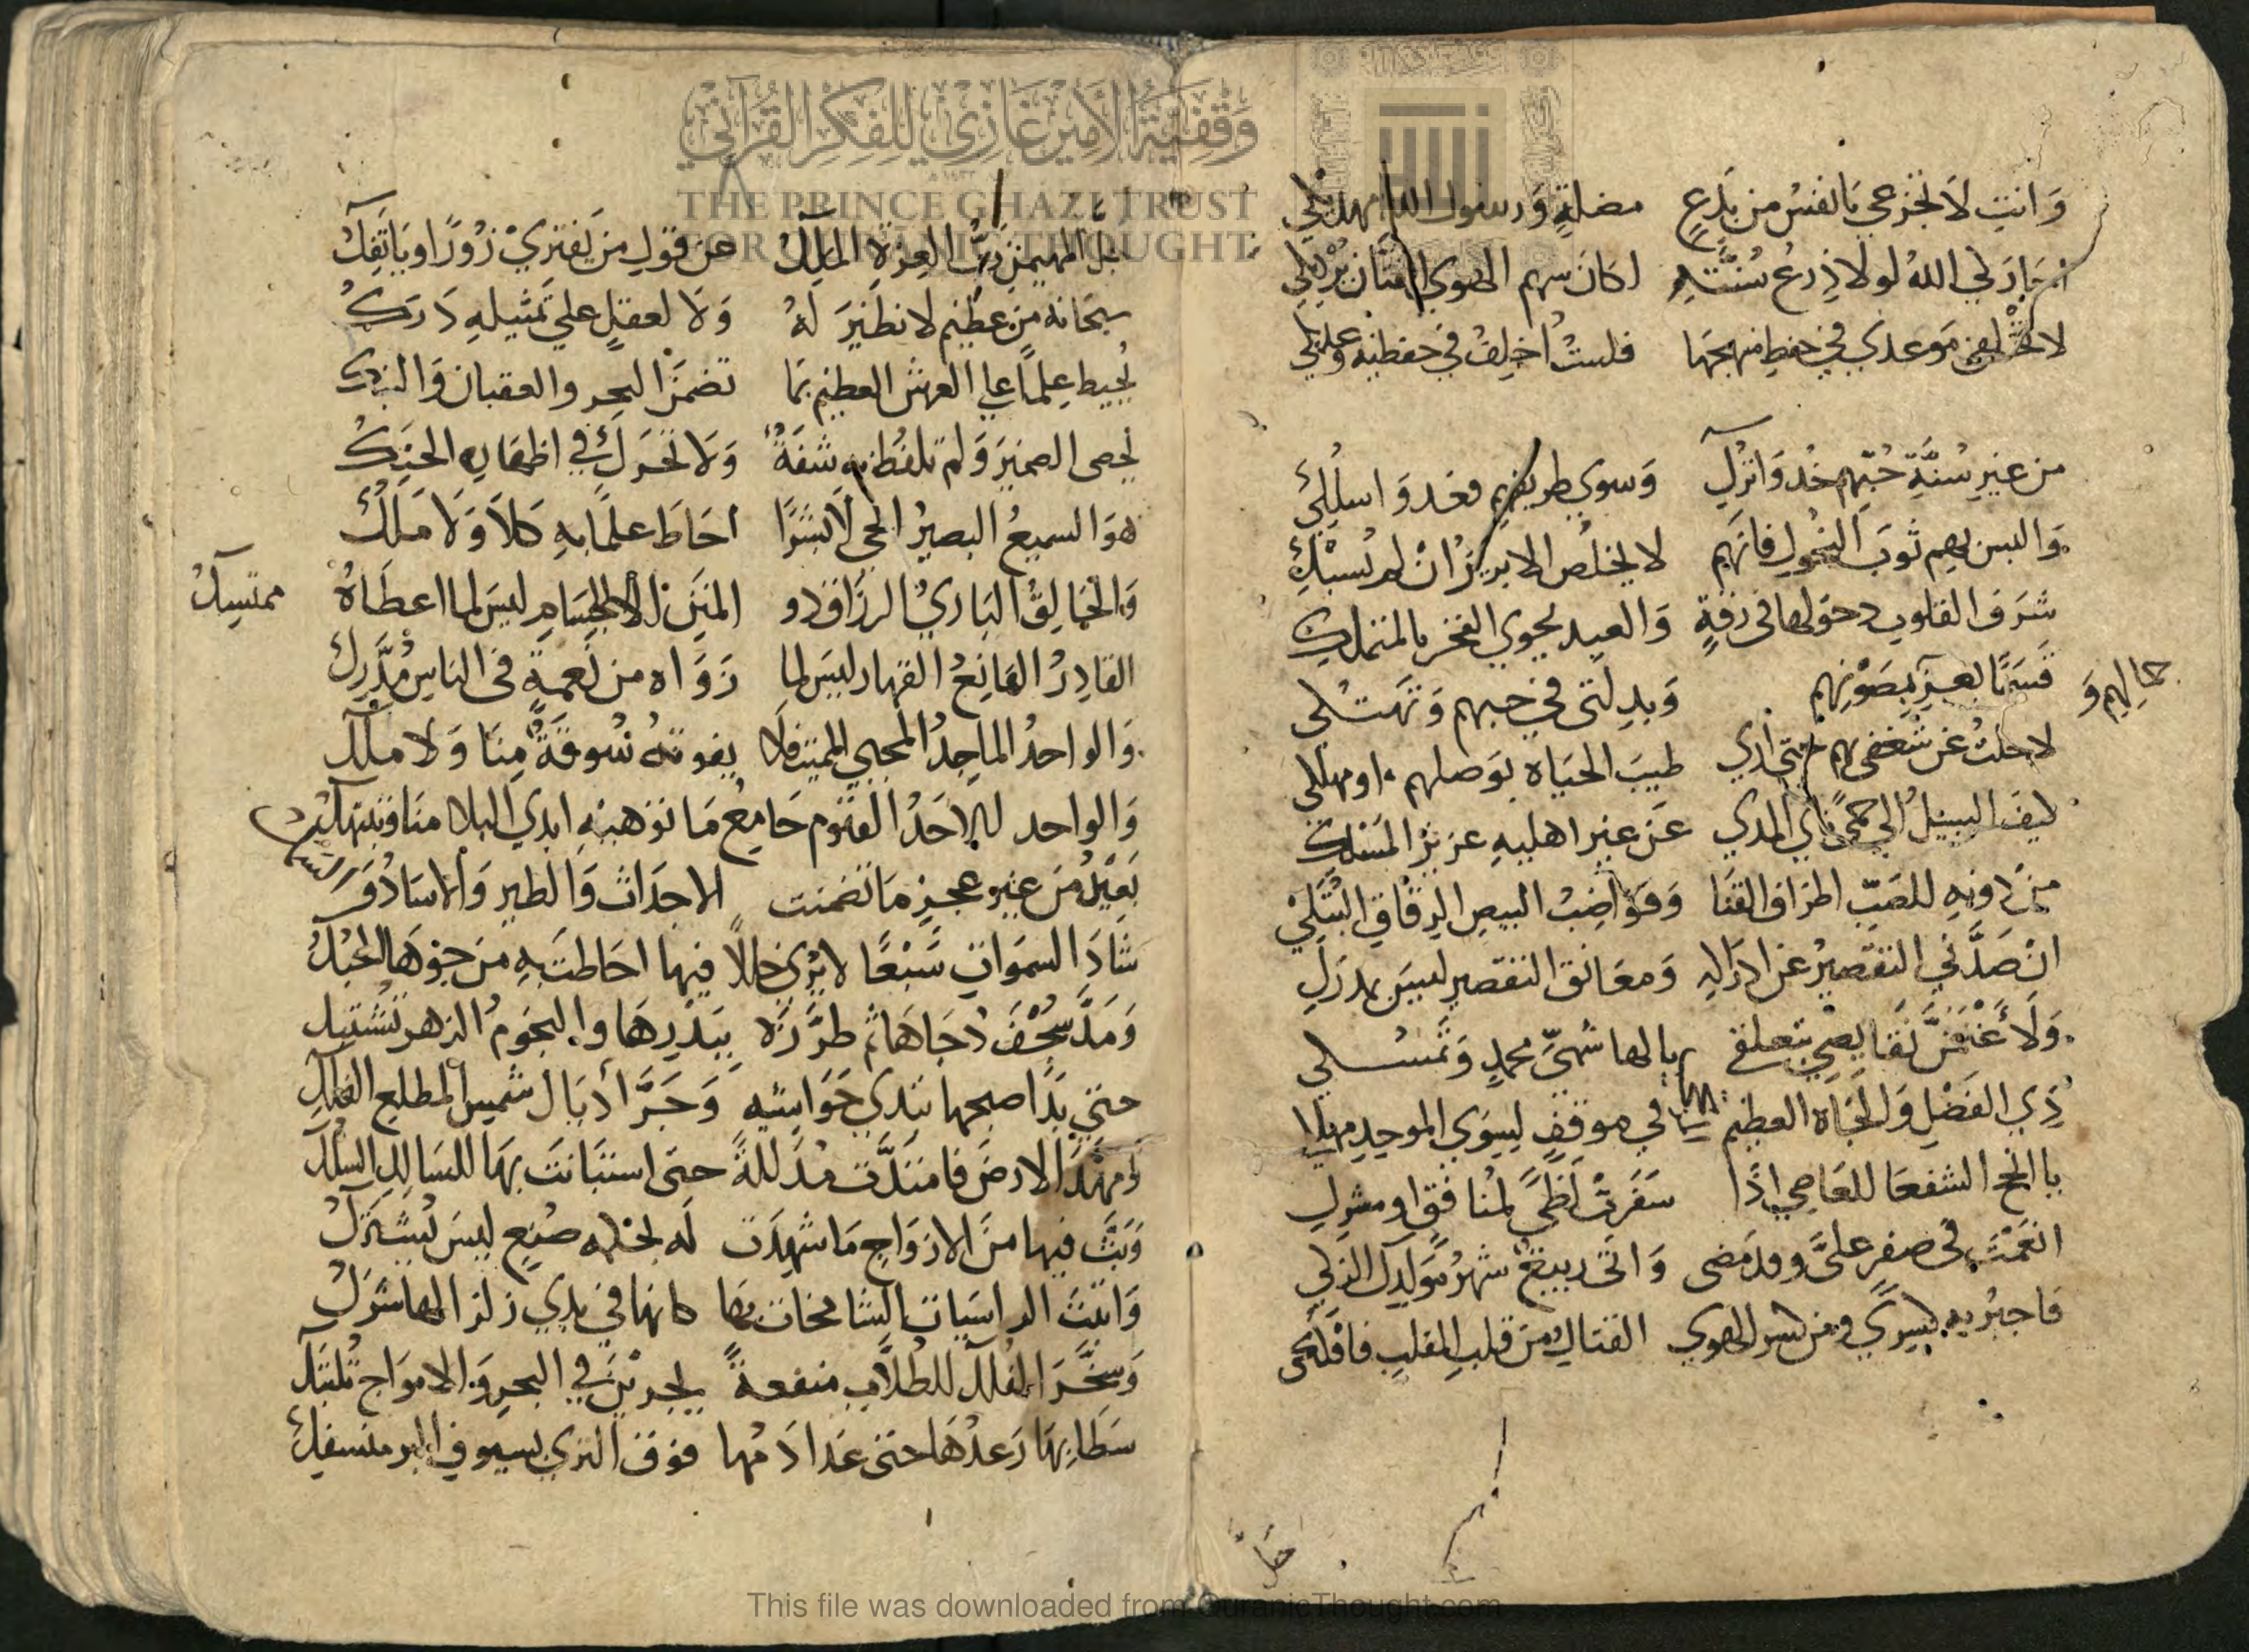 وَانتِ لَا تجزعي يَا نفسُ من بِدَعٍ مضلةٍ وَرسول اللهِ مهديكِ
لولا ذِرعُ سُنَّتهِ لكانَ سهم الهوي الفتان يرديكِ
لا تخلفي مَوعدي في حفظِ منهجهَا فلستُ اخلِفُ في حفظيه وعديكِ
من غيرِ سُنَّةِ حُبّهم خُذ وَاترُكِ وَسوي طريقهم فعد وَاسلُكِ
وَالبس بهم ثوبَ النحُولِ فانَهم لا يخلُص الابريزُ انْ لم يُسْبَكِ
شرَف القلوب دخولها في رقةٍ وَالعبد يحوي الفخر بالمتملك
قسَمًا بعزِ مَصُونهم وَبدلتي في حبهم وَتهَتكي
جمالهم وَ
لا حلتُ عن شغفي بهم حتى اري طيبَ الحيَاة بوَصلهم او مهلكي
كيفَ السبيلُ الي حمًى نَاي المدي عَن غير اهليهِ عزيزُ المسْلكِ
من دونهِ للصَبِّ اطرَاف القنَا وَقوَاضبُ البيضِ الرقَاقِ البُتَّكِ
انْ صَدَّني التقصيرُ عن ادرَاكهِ وَمعَانق التقصير ليسَ بمدركِ
وَلَا نقَايصِي بتعلقي بالهاشميِّ محمدٍ وَتمسُّكي
ذِي الفَضْلِ وَالجَاه العظيم في موقفٍ لسِوَي الموحِد مهلك
يا انجح الشفعَا للعَاصِي اذَا سَفرتْ لَظًى لمنافقٍ او مشركِ
انعَمْتَ في صفرٍ عليَّ وقد مَضى وَاتى ربيعٌ شهرُ مَولدِكَ الزكي
فاجبُر به كسرِي ومن كسر الهوي الفتاكِ من قلبِ المقلب فافككِ
جَلَّ المهيمنُ رَبُّ العِزةِ الملِكُ عن قولِ من يَفترِيْ زُورًا وَيَاتَفِكُ
سبحَانه من عظيم لا نظيرَ لهُ وَلا لعقلٍ علي تمثيلهِ دَرَكُ
يُحيط علِمًا علي العرش العظيم بمَا تضمنَ البحر والعقبان وَالنبك
يُحصى الضميرَ وَلم تلفُظ بهِ شفَةٌ وَلا تحرَّكَ في اظهَارِه الحنَكُ
هوَ السميعُ البصيرُ الحي لَا بَشرًا احَاطَ علمًا بهِ كلَا وَلا مَلَكُ
وَالخالِقُ البَاريُ الرزاق ذو المنَنِ الجسَامِ ليسَ لما اعطَاهُ ممتسِكُ
القادِرُ المَانِعُ القهار ليسَ لما زَوَاه من نعمةٍ في الناسِ مُدَّرِكُ
وَالواحدُ الماجِدُ المحيي المميت فلا يفوتهُ سُوقَةٌ مِنَا وَلا ملكُ
وَالواحد الاحَدُ القيوم جَامعُ مَا توهبهُ ايدي البلا منا وتنتهكُ
يعيدُ من غير عجزٍ مَا تضمنت الاجدَاث وَالطير وَالاسَادُ وَالسمكُ
شادَ السموَاتِ سَبْعًا لا يُرى خللاً فيها احَاطت بهِ من جوهَا الحُبُكُ
وَمَدَّ سُجْفَ دُجَاهَا ثم طرَّزَهُ بِبَدْرِهَا والنجومُ الزهر تشتبك
حتي بَدَا صبحها تندي حَوَاشيهِ وَجَرَّ أذيَالَ شمسٍ المطلع الفلكُ
وَمهَّدَ الارضَ فامتَدَّت مُذللةً حتى استبَانتَ بهَا للسَالكِ السِكَكُ
وَبَثَّ فيها منَ الازوَاجِ مَا شهِدَت لَه بحكمه صُنعٍ ليسَ يُشترَكُ
وَاثبتَ الراسيَات الشامخات بهَا كانها في يدي زلزالها شَرَكُ
وَسخَّرَ الفُلكَ للطلابِ منفعةً يجرينَ في البحرِ وَالامواج تلتبكُ
سَطَا بهَا رَعدُهَا حتى غدا دَمُها فوق الثري بسيوف البرق منسفِكُ
This file was downloaded from QuranicThought.com
وَقْفِيَّةُ الأَمِيرِ غَازِي لِلْفِكْرِ الْقُرْآنِيِّ
THE PRINCE GHAZI TRUST
FOR QUR'ANIC THOUGHT